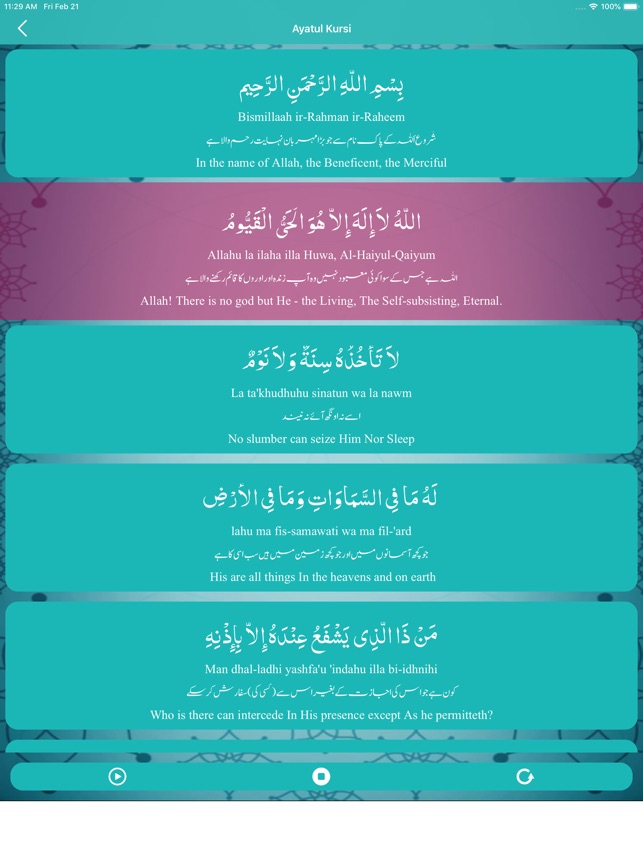 11:29 AM Fri Feb 21 100%
Ayatul Kursi
بِسْمِ اللّهِ الرَّحْمَنِ الرَّحِيمِ
Bismillaah ir-Rahman ir-Raheem
شروع اللہ کے پاک نام سے جو بڑا مہربان نہایت رحم والا ہے
In the name of Allah, the Beneficent, the Merciful
اللّهُ لاَ إِلَهَ إِلاَّ هُوَ الْحَيُّ الْقَيُّومُ
Allahu la ilaha illa Huwa, Al-Haiyul-Qaiyum
اللہ ہے جس کے سوا کوئی معبود نہیں وہ آپ زندہ اور اوروں کا قائم رکھنے والا ہے
Allah! There is no god but He - the Living, The Self-subsisting, Eternal.
لاَ تَأْخُذُهُ سِنَةٌ وَلاَ نَوْمٌ
La ta'khudhuhu sinatun wa la nawm
اسے نہ اونگھ آئے نہ نیند
No slumber can seize Him Nor Sleep
لَهُ مَا فِي السَّمَاوَاتِ وَمَا فِي الأَرْضِ
lahu ma fis-samawati wa ma fil-'ard
جو کچھ آسمانوں میں اور جو کچھ زمین میں ہیں سب اسی کا ہے
His are all things In the heavens and on earth
مَنْ ذَا الَّذِي يَشْفَعُ عِنْدَهُ إِلاَّ بِإِذْنِهِ
Man dhal-ladhi yashfa'u 'indahu illa bi-idhnihi
کون ہے جو اس کی اجازت کے بغیر اس سے (کسی کی) سفارش کر سکے
Who is there can intercede In His presence except As he permitteth?